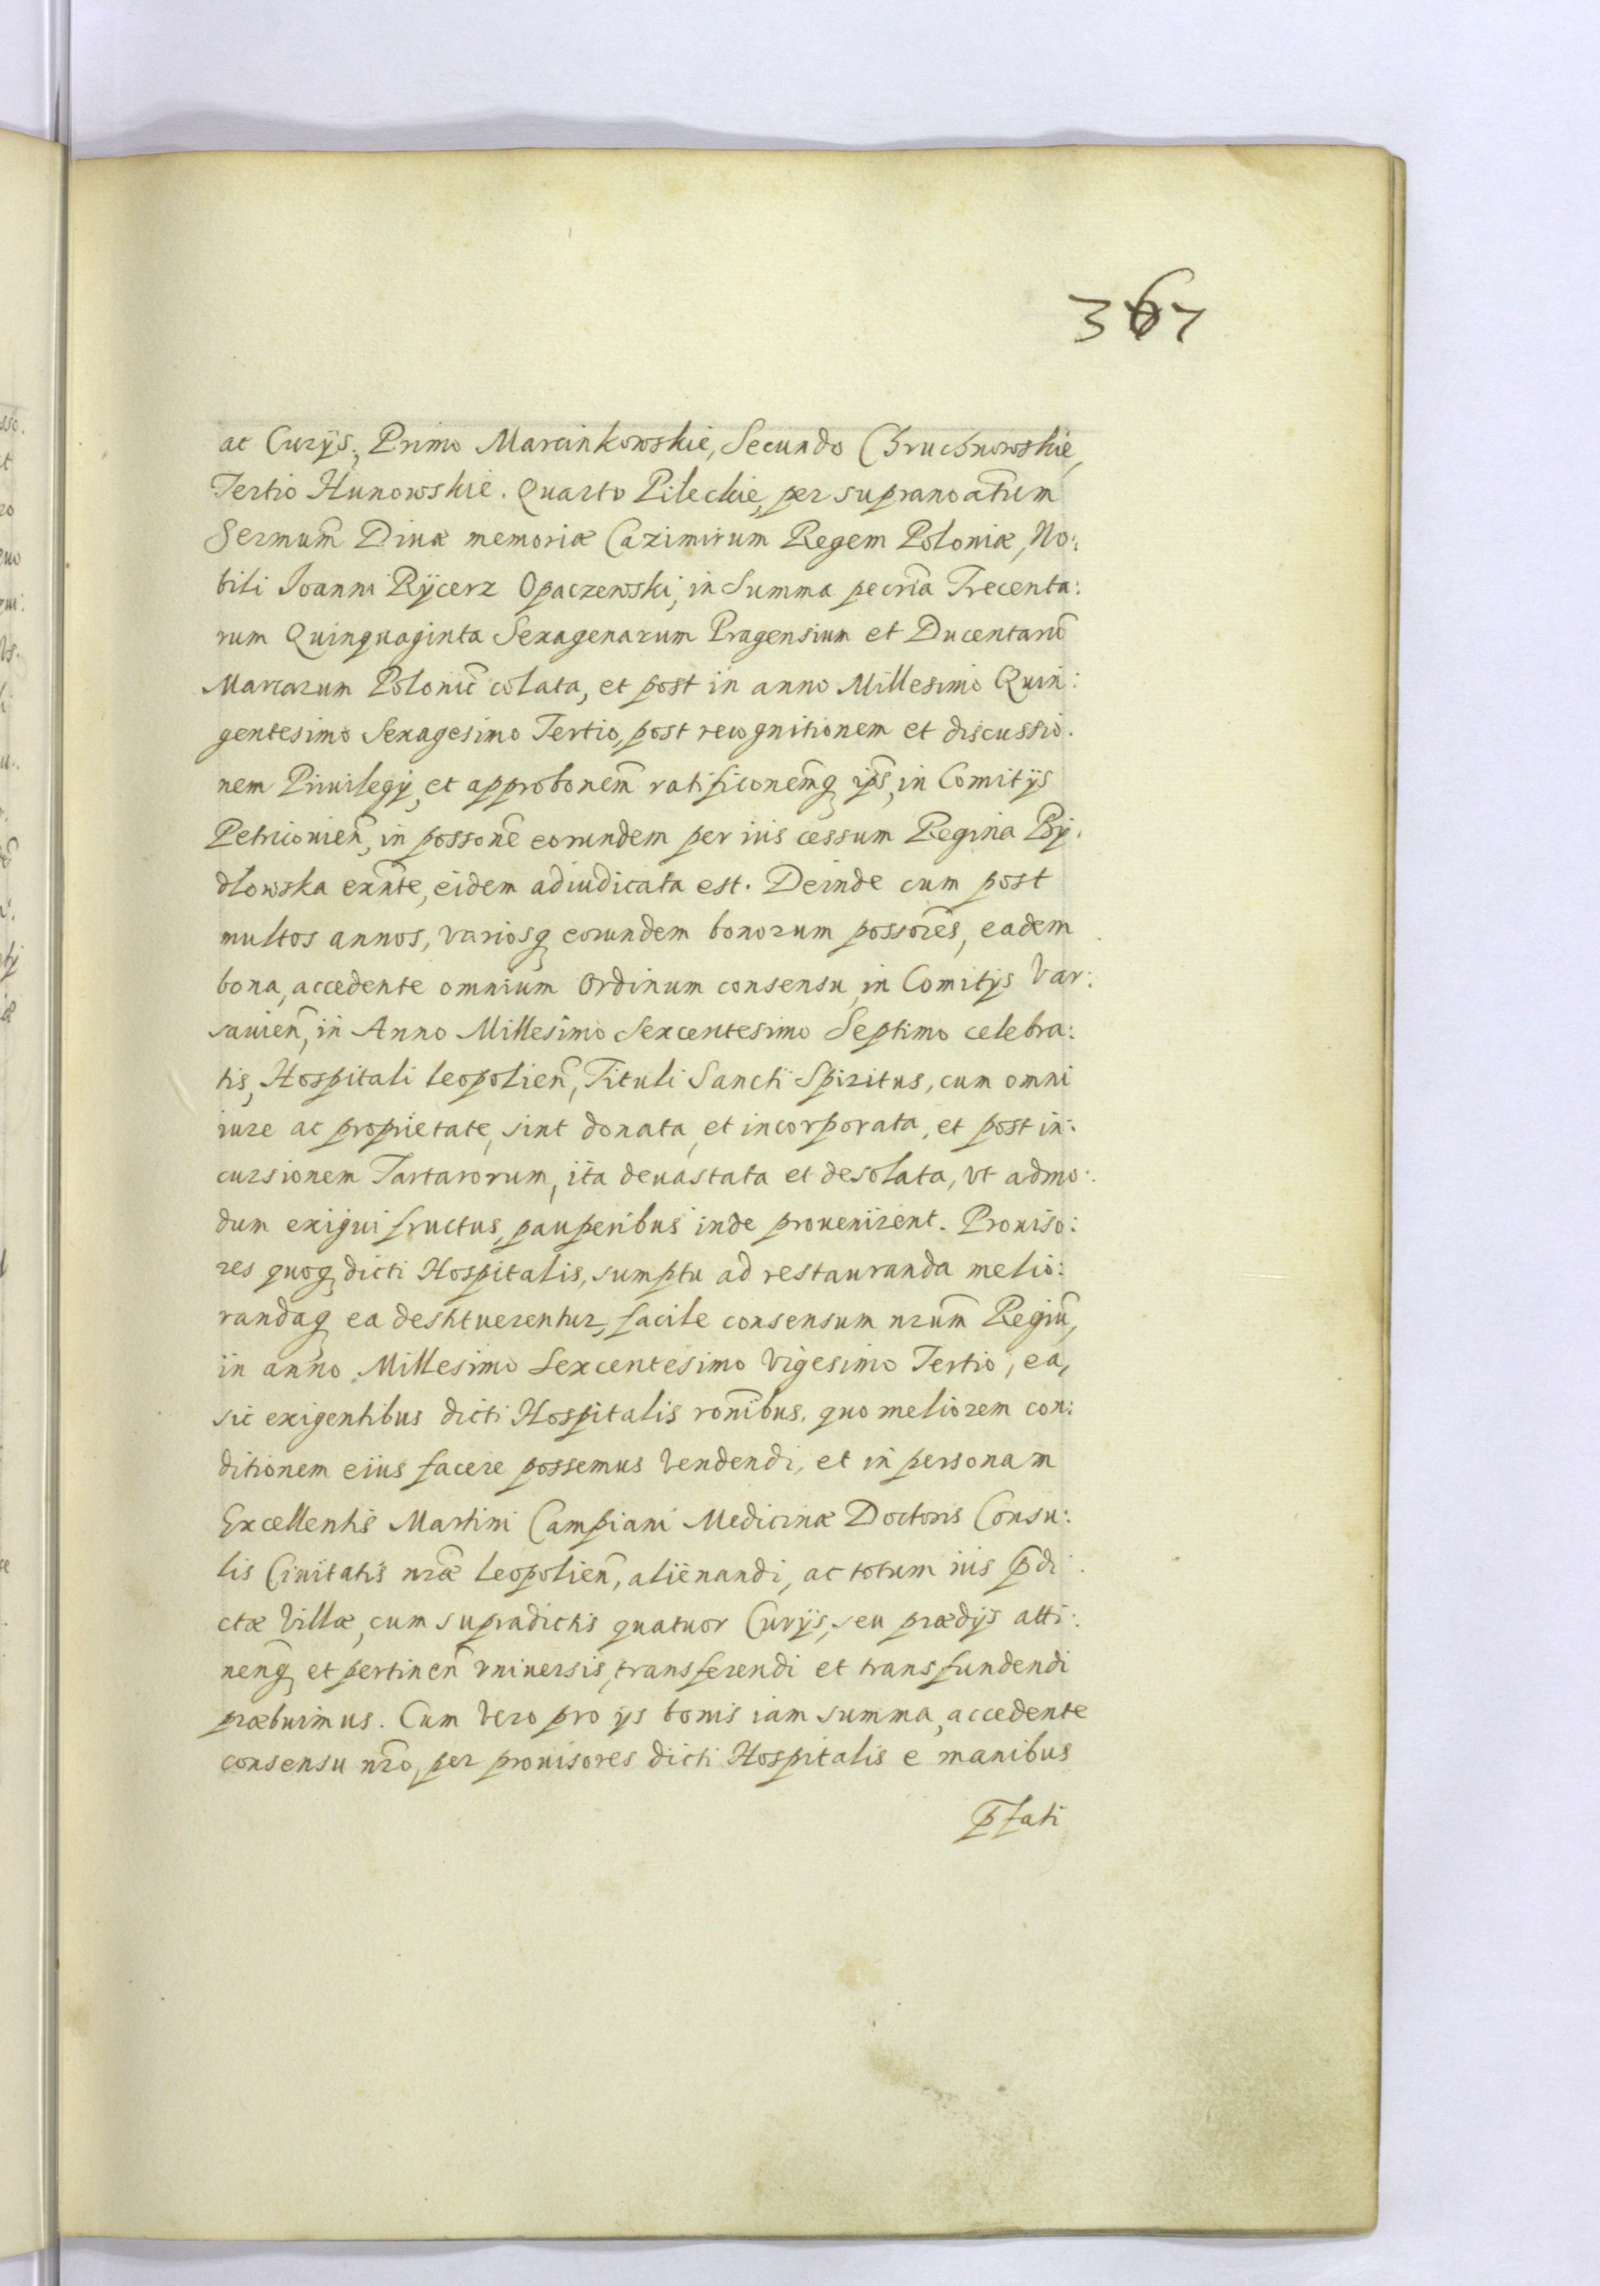 367
ac Curijs; Primo Marcinkowskie, Secundo Chruchnowskie,
Tertio Hunowskie. Quarto Pileckie, per supranoãtum
Sermum̃ Diuæ memoriæ Cazimirum Regem Poloniæ, No:
bili Ioanni Rÿcerz Opaczewski, in Summa pecria̅ Trecenta:
rum Quinquaginta Sexagenarum Pragensium et Ducentarũ
Marcarum Polonic̃ colata, et post in anno Millesimo Quin:
gentesimo Sexagesimo Tertio, post recognitionem et discussio.
nem Priuilegij, et approbonem̃ ratificonem̃q ips̃, in Comitijs
Petricouien̅, in posson̅e eorundem per ius cessum Regina Rÿ.
dlowska exñte, eidem adiudicata est. Deinde cum post
multos annos, variosq eorundem bonorum possor̃es, eadem
bona, accedente omnium Ordinum consensu, in Comitijs Var:
sauien̅, in Anno Millesimo Sexcentesimo Septimo celebra:
tis, Hospitali leopolien̅, Tituli Sancti Spiritus, cum omni
iure ac proprietate, sint donata, et incorporata, et post in:
cursionem Tartarorum, ita deuastata et desolata, vt admo:
dum exigui fructus, pauperibus inde prouenirent. Prouiso:
res quoq dicti Hospitalis, sumptu ad restauranda melio:
randaq ea destituerentur, facile consensum nrum̃ Regiũ,
in anno Millesimo Sexcentesimo Vigesimo Tertio, ea,
sic exigentibus dicti Hospitalis ronĩbus, quo meliorem con:
ditionem eius facere possemus vendendi, et in personam
Excellentis Martini Campiani Medicinæ Doctoris Consu:
lis Ciuitatis nræ̃ leopolien̅, alienandi, ac totum ius p̃di
ctæ Villæ, cum supradictis quatuor Curijs, seu prædijs atti:
nenq̃ et pertinen̅ vniuersis, transferendi et transfundendi
præbuimus. Cum vero pro ijs bonis iam summa, accedente
consensu nrõ, per prouisores dicti Hospitalis e manibus
p̃fati